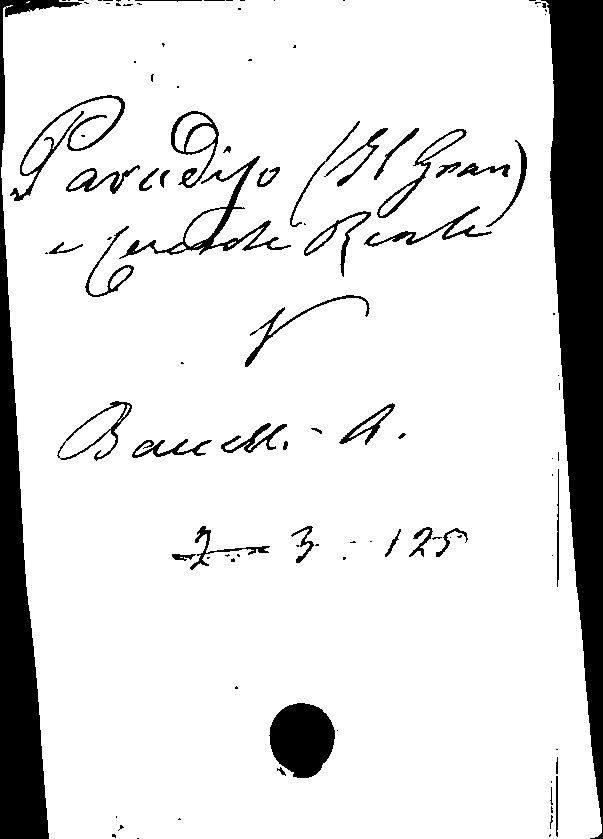 Paradiso (Il Gran)
e Ceresole Reale
V
Baccelli - A.
3 125